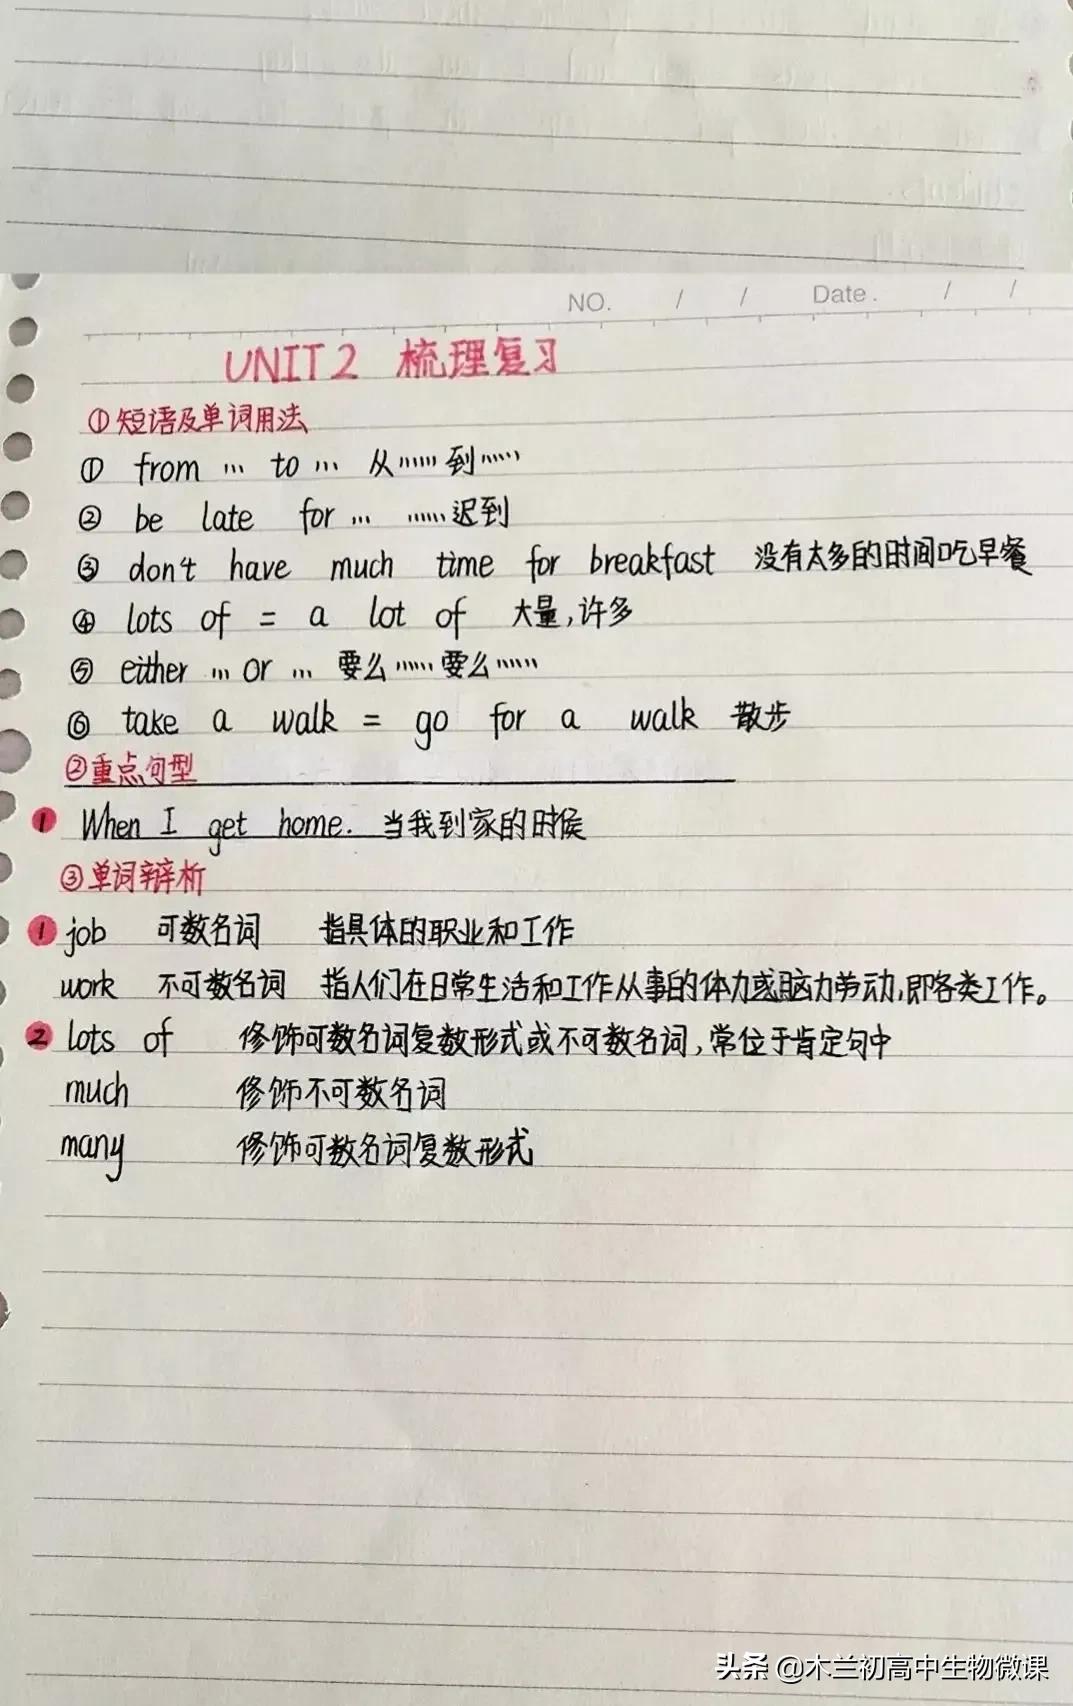 NO. / / Date. / /
UNIT2 梳理复习
①短语及单词用法
① from … to … 从……到……
② be late for … ……迟到
③ don't have much time for breakfast 没有太多的时间吃早餐
④ lots of = a lot of 大量,许多
⑤ either … or … 要么……要么……
⑥ take a walk = go for a walk 散步
②重点句型
1 When I get home. 当我到家的时候
③单词辩析
1 job 可数名词 指具体的职业和工作
work 不可数名词 指人们在日常生活和工作从事的体力或脑力劳动,即各类工作。
2 lots of 修饰可数名词复数形式或不可数名词,常位于肯定句中
much 修饰不可数名词
many 修饰可数名词复数形式
头条 @木兰初高中生物微课